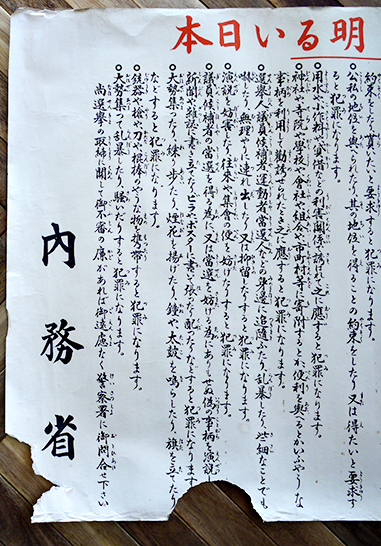 明るい日本
約束をしたり貰いたいと要求すると犯罪になります。
○公私の地位を與へられたり、其の地位を得ることの約束をしたり又は得たいと要求すると犯罪になります。
○用水、小作料や貸借などの利害関係で誘はれて之に應すると犯罪になります。
○神社や寺院や學校や會社や組合や市町村等に寄附するとか便利を與へるとかいふやうな事柄を利用して勧誘せられたとき之に應すると犯罪になります。
○選擧人、議員候補者、運動者、當選人などの身邊に追随したり、乱暴したり、些細なことでも嚇したり、無理やりに連れ出したり又は抑留したりすると犯罪になります。
○演説を妨害したり、往来や集會の便を妨げたりすると犯罪になります。
○議員候補者の當選を得る為に又は當選を妨げる為にありもせぬ偽の事柄を演説し新聞や雑誌に書き立てたりビラやポスターに書いて張たり配たりなどすると犯罪になります
○大勢集つたり、練り歩いたり、煙花を揚げたり、鐘や太鼓を鳴らしたり、旗を立てたりなどすると犯罪になります。
○銃器や槍や刀や棍棒のやうな物を携帯すると犯罪になります。
○大勢集つて乱暴したり、騒いだりすると犯罪になります。
尚選擧の取締に関して御不審の廉があれば御遠慮なく警察署に御問合せ下さい
内務省